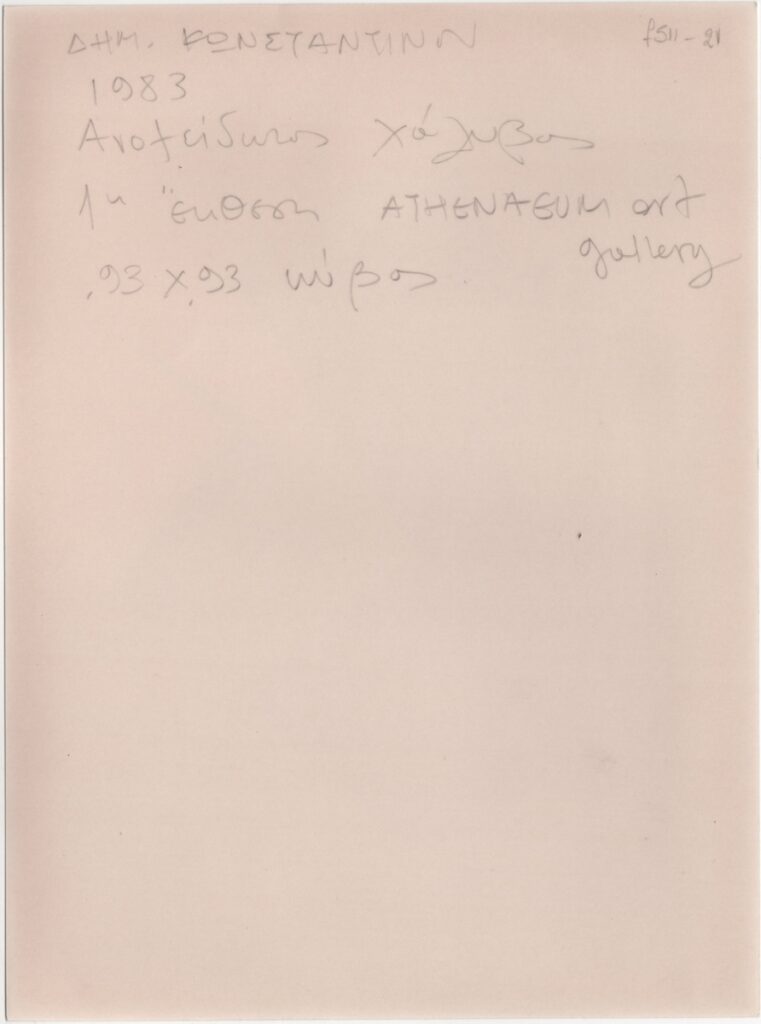 ΔΗΜ. ΚΩΝΣΤΑΝΤΙΝΟΥ f511-21
1983
Ανοξείδωτος χάλυβας
1η έκθεση ATHENAEUM art
gallery
.93 x .93 κύβος.